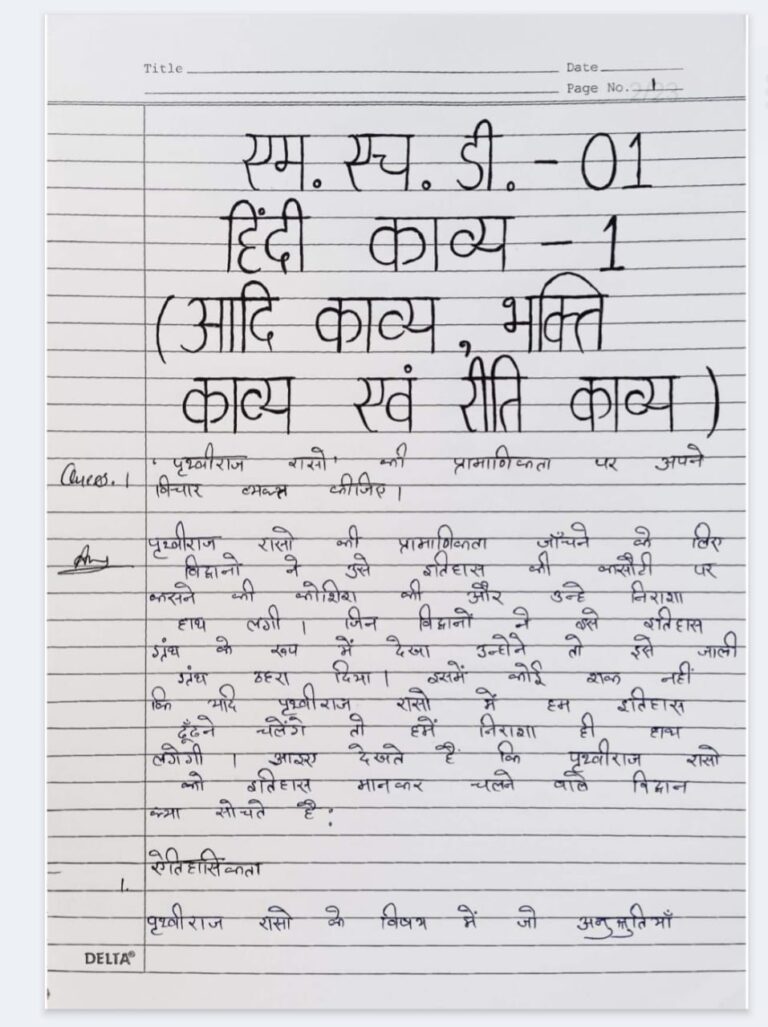 Title
Date
Page No. 1
एम. एच. डी. - 01
हिंदी काव्य - 1
(आदि काव्य, भक्ति
काव्य एवं रीति काव्य)
Ques. 1 'पृथ्वीराज रासो' की प्रामाणिकता पर अपने
विचार व्यक्त कीजिए।
Ans पृथ्वीराज रासो की प्रामाणिकता जाँचने के लिए
विद्वानो ने उसे इतिहास की कसौटी पर
कसने की कोशिश की और उन्हे निराशा
हाथ लगी। जिन विद्वानों ने इसे इतिहास
ग्रंथ के रूप में देखा उन्होने तो इसे जाली
ग्रंथ ठहरा दिया। इसमें कोई शक नहीं
कि यदि पृथ्वीराज रासो में हम इतिहास
ढूँढने चलेंगे तो हमें निराशा ही हाथ
लगेगी। आइए देखते हैं कि पृथ्वीराज रासो
को इतिहास मानकर चलने वाले विद्वान
क्या सोचते है:
1. ऐतिहासिकता
पृथ्वीराज रासो के विषय में जो अनुश्रुतियाँ
DELTA®